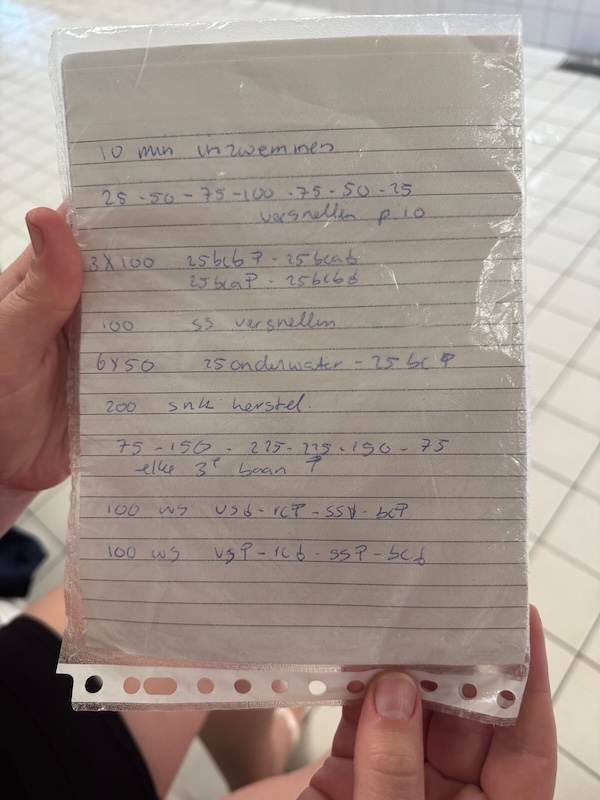 10 min inzwemmen
25 - 50 - 75 - 100 - 75 - 50 - 25
versnellen p. 10
3 x 100 25 bcb ♀ - 25 bca ♂
25 bca ♀ - 25 bcb ♂
100 ss versnellen
6 x 50 25 onderwater - 25 bc ♀
200 snk herstel.
75 - 150 - 225 - 225 - 150 - 75
elke 3e baan ♀
100 ws vs ♂ - rc ♀ - ss ♂ - bc ♀
100 ws vs ♀ - rc ♂ - ss ♀ - bc ♂